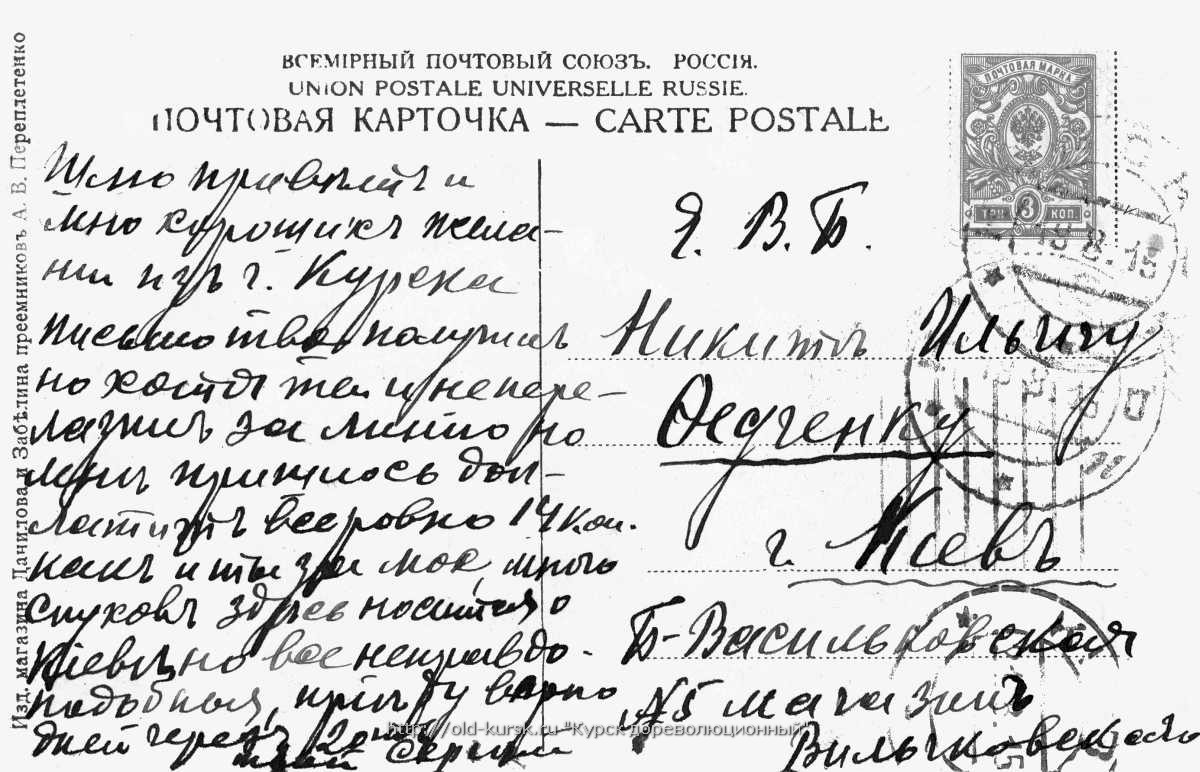 ВСЕМІРНЫЙ ПОЧТОВЫЙ СОЮЗЪ. РОССІЯ.
UNION POSTALE UNIVERSELLE RUSSIE.
ПОЧТОВАЯ КАРТОЧКА — CARTE POSTALE
ПОЧТОВАЯ МАРКА
ТРИ 3 КОП
Изд. магазина Данилова и Забѣлина преемниковъ А. В. Переплетенко
Шлю привѣтъ и
мно хорошихъ жела-
ни изъ г. Курска
письмо твое получилъ
но хотя ты и непере-
лазилъ за линию но
мнѣ пришлось доп-
латить всеровно 14 коп.
какъ и ты за мое, много
слуховъ здѣсь носится о
Кіевѣ, но все неправдо-
подобныя, пріѣду
дней черезъ 20
Я. В. Б.
Никитѣ Ильичу
Федченку
г. Кіевъ
Б-Васильковская
№5 магазинъ
Вильчковскаго
http://old-kursk.ru "Курск дореволюционный"